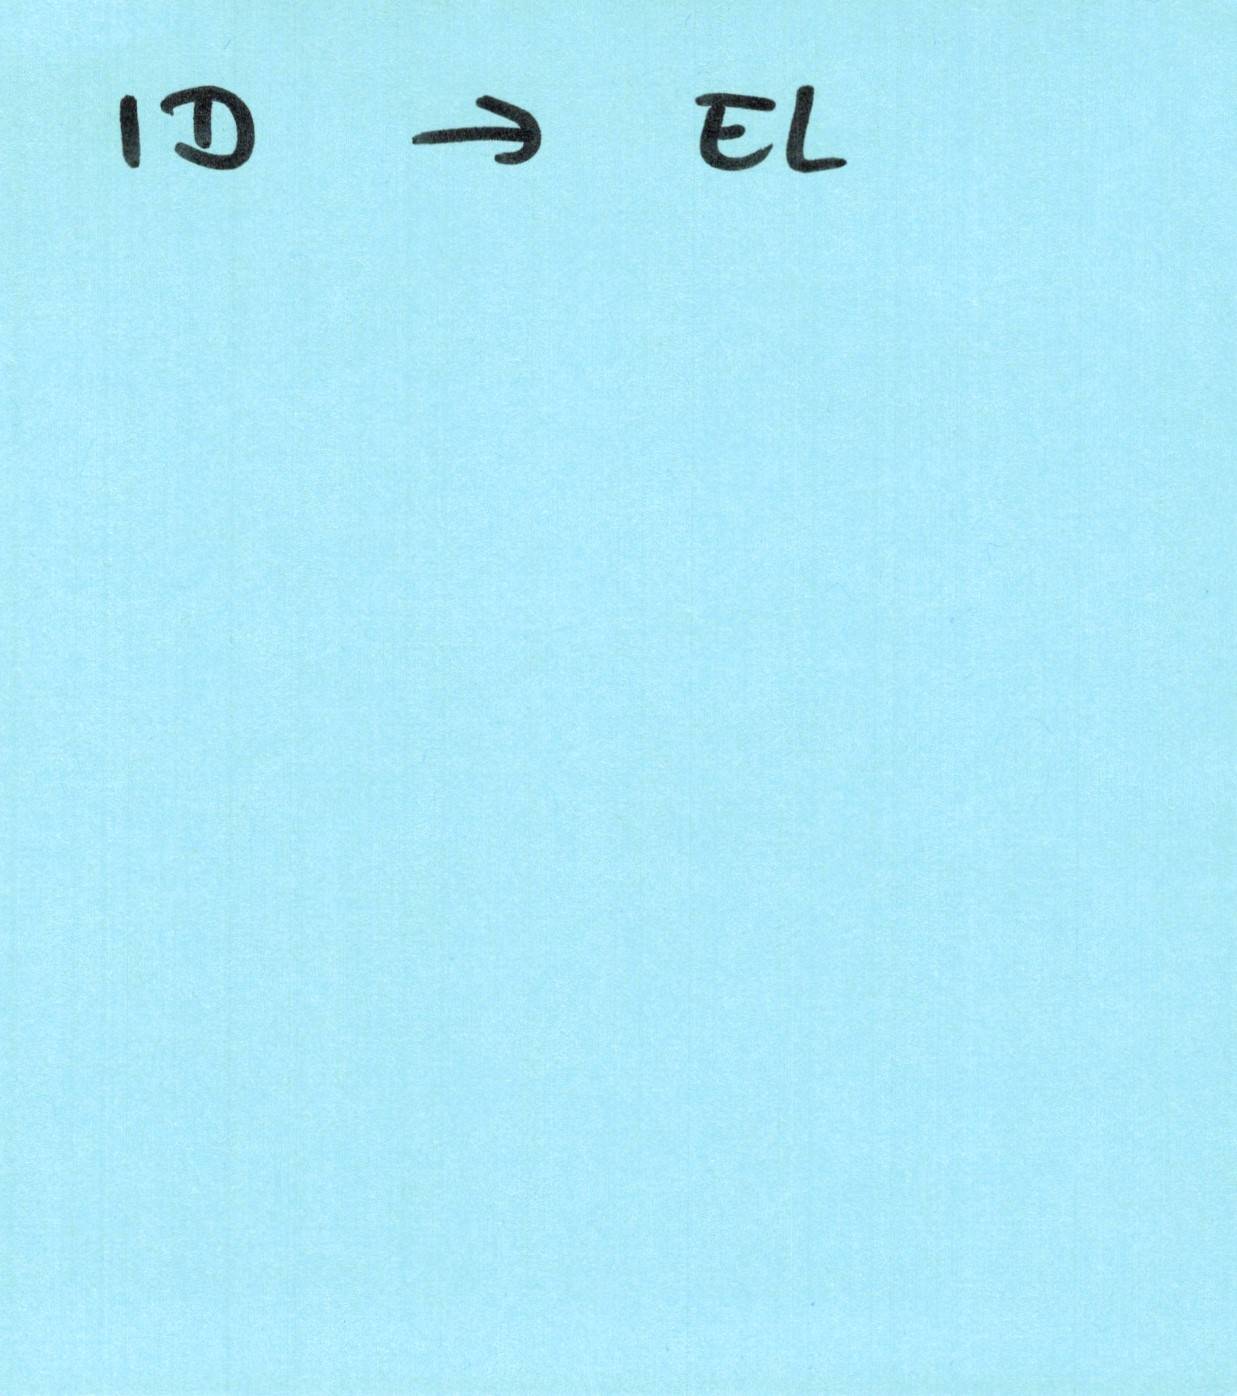 ID → EL